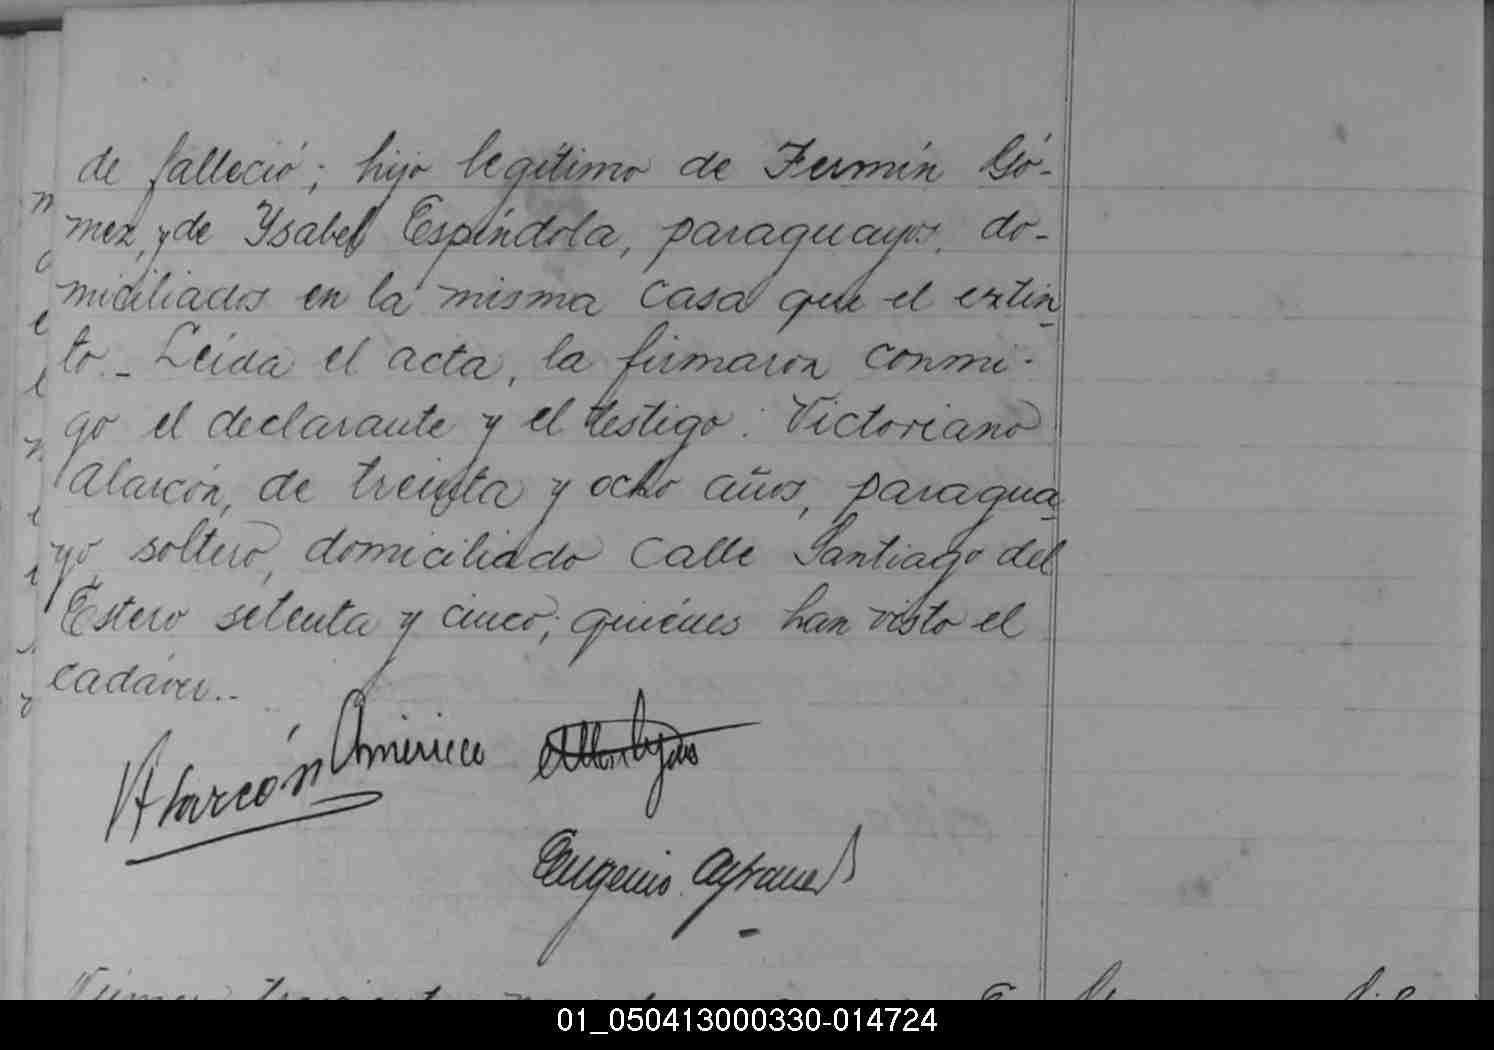 de falleció; hijo legítimo de Fermín Gó-
mez, y de Ysabel Espíndola, paraguayos, do-
miciliados en la misma casa que el extin
to._ Leída el acta, la firmaron conmi-
go el declarante y el testigo: Victoriano
Alarcón, de treinta y ocho años, paragua
yo soltero, domiciliado calle Santiago del
Estero setenta y cinco; quiénes han visto el
cadáver..
VAlarcón Américo
Eugenio
01_050413000330-014724